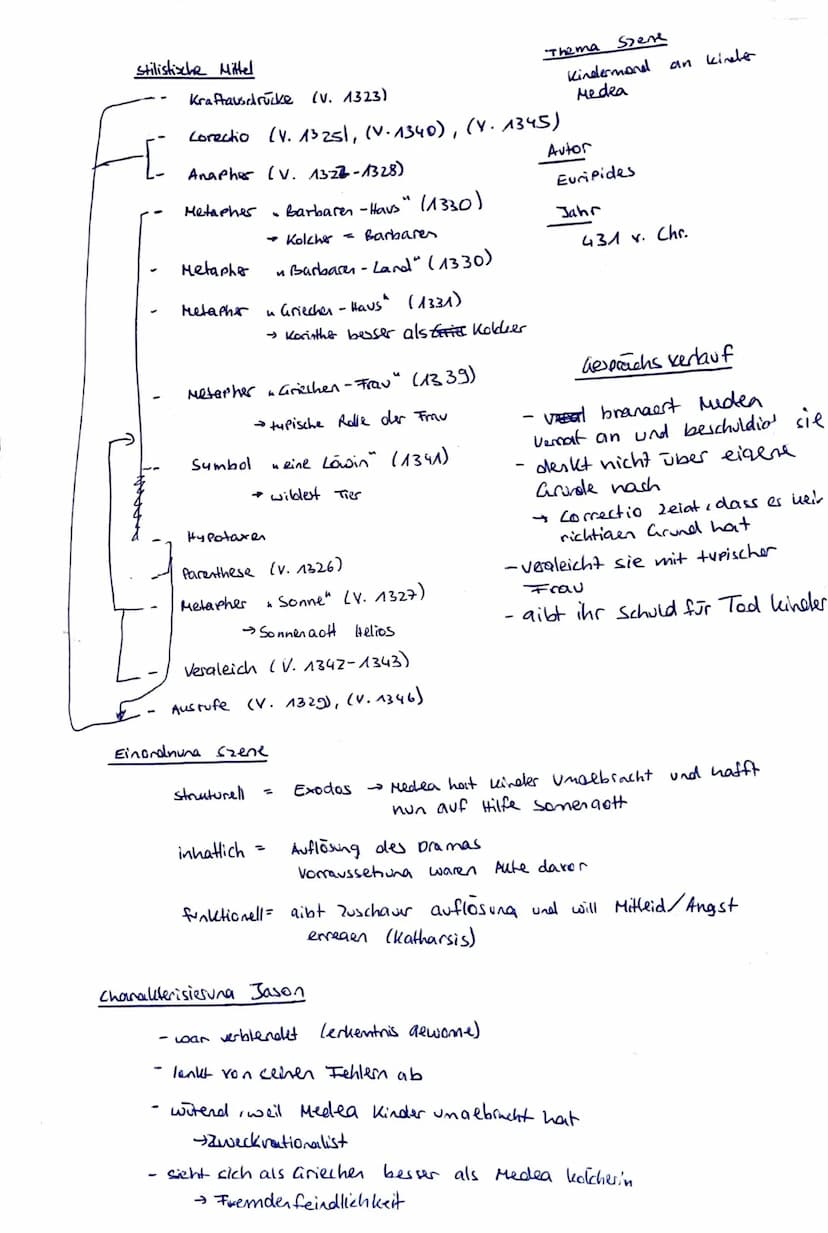 Stilistische Mittel
- Kraftausdrücke (V. 1323)
- Corectio (V. 1325), (V. 1340), (V. 1345)
- Anapher (V. 1327-1328)
- Metapher "Barbaren-Haus" (1330)
→ Kolcher = Barbaren
- Metapher "Barbaren-Land" (1330)
- Metapher "Griechen-Haus" (1331)
→ Korinther besser als Kolcher
- Metapher "Griechen-Frau" (1339)
→ typische Rolle der Frau
- Symbol "eine Löwin" (1341)
→ wildest Tier
- Hypotaxen
- Parenthese (V. 1326)
- Metapher "Sonne" (V. 1327)
→ Sonnengott Helios
- Vergleich (V. 1342-1343)
- Ausrufe (V. 1329), (V. 1346)
Thema Szene
Kindermord an Kinder
Medea
Autor
Euripides
Jahr
431 v. Chr.
Gesprächsverlauf
- prangert Medea
Verrat an und beschuldigt sie
- denkt nicht über eigene
Gründe nach
→ Correctio zeigt, dass es
richtigen Grund hat
- vergleicht sie mit typischer
Frau
- gibt ihr Schuld für Tod Kinder
Einordnung Szene
strukturell = Exodos → Medea hat Kinder umgebracht und hofft
nun auf Hilfe Sonnengott
inhatlich = Auflösung des Dramas
Vorraussetzung waren Akte davor
funktionell = gibt Zuschauer auflösung und will Mitleid/Angst
erregen (Katharsis)
Charakterisierung Jason
- war verblendet (erkentnis gewonne)
- lenkt von seinen Fehlern ab
- wütend, weil Medea Kinder umgebracht hat
→ Zweckrationalist
- sieht sich als Griechen besser als Medea Kolcherin
→ Fremdenfeindlichkeit